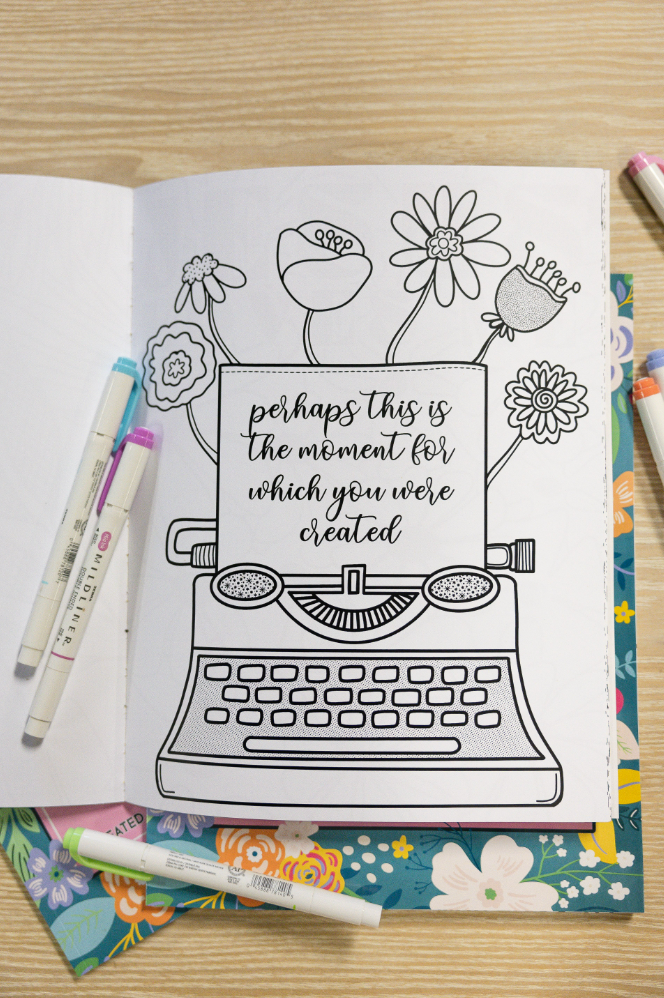 perhaps this is
the moment for
which you were
created
MILDLINER
EATED